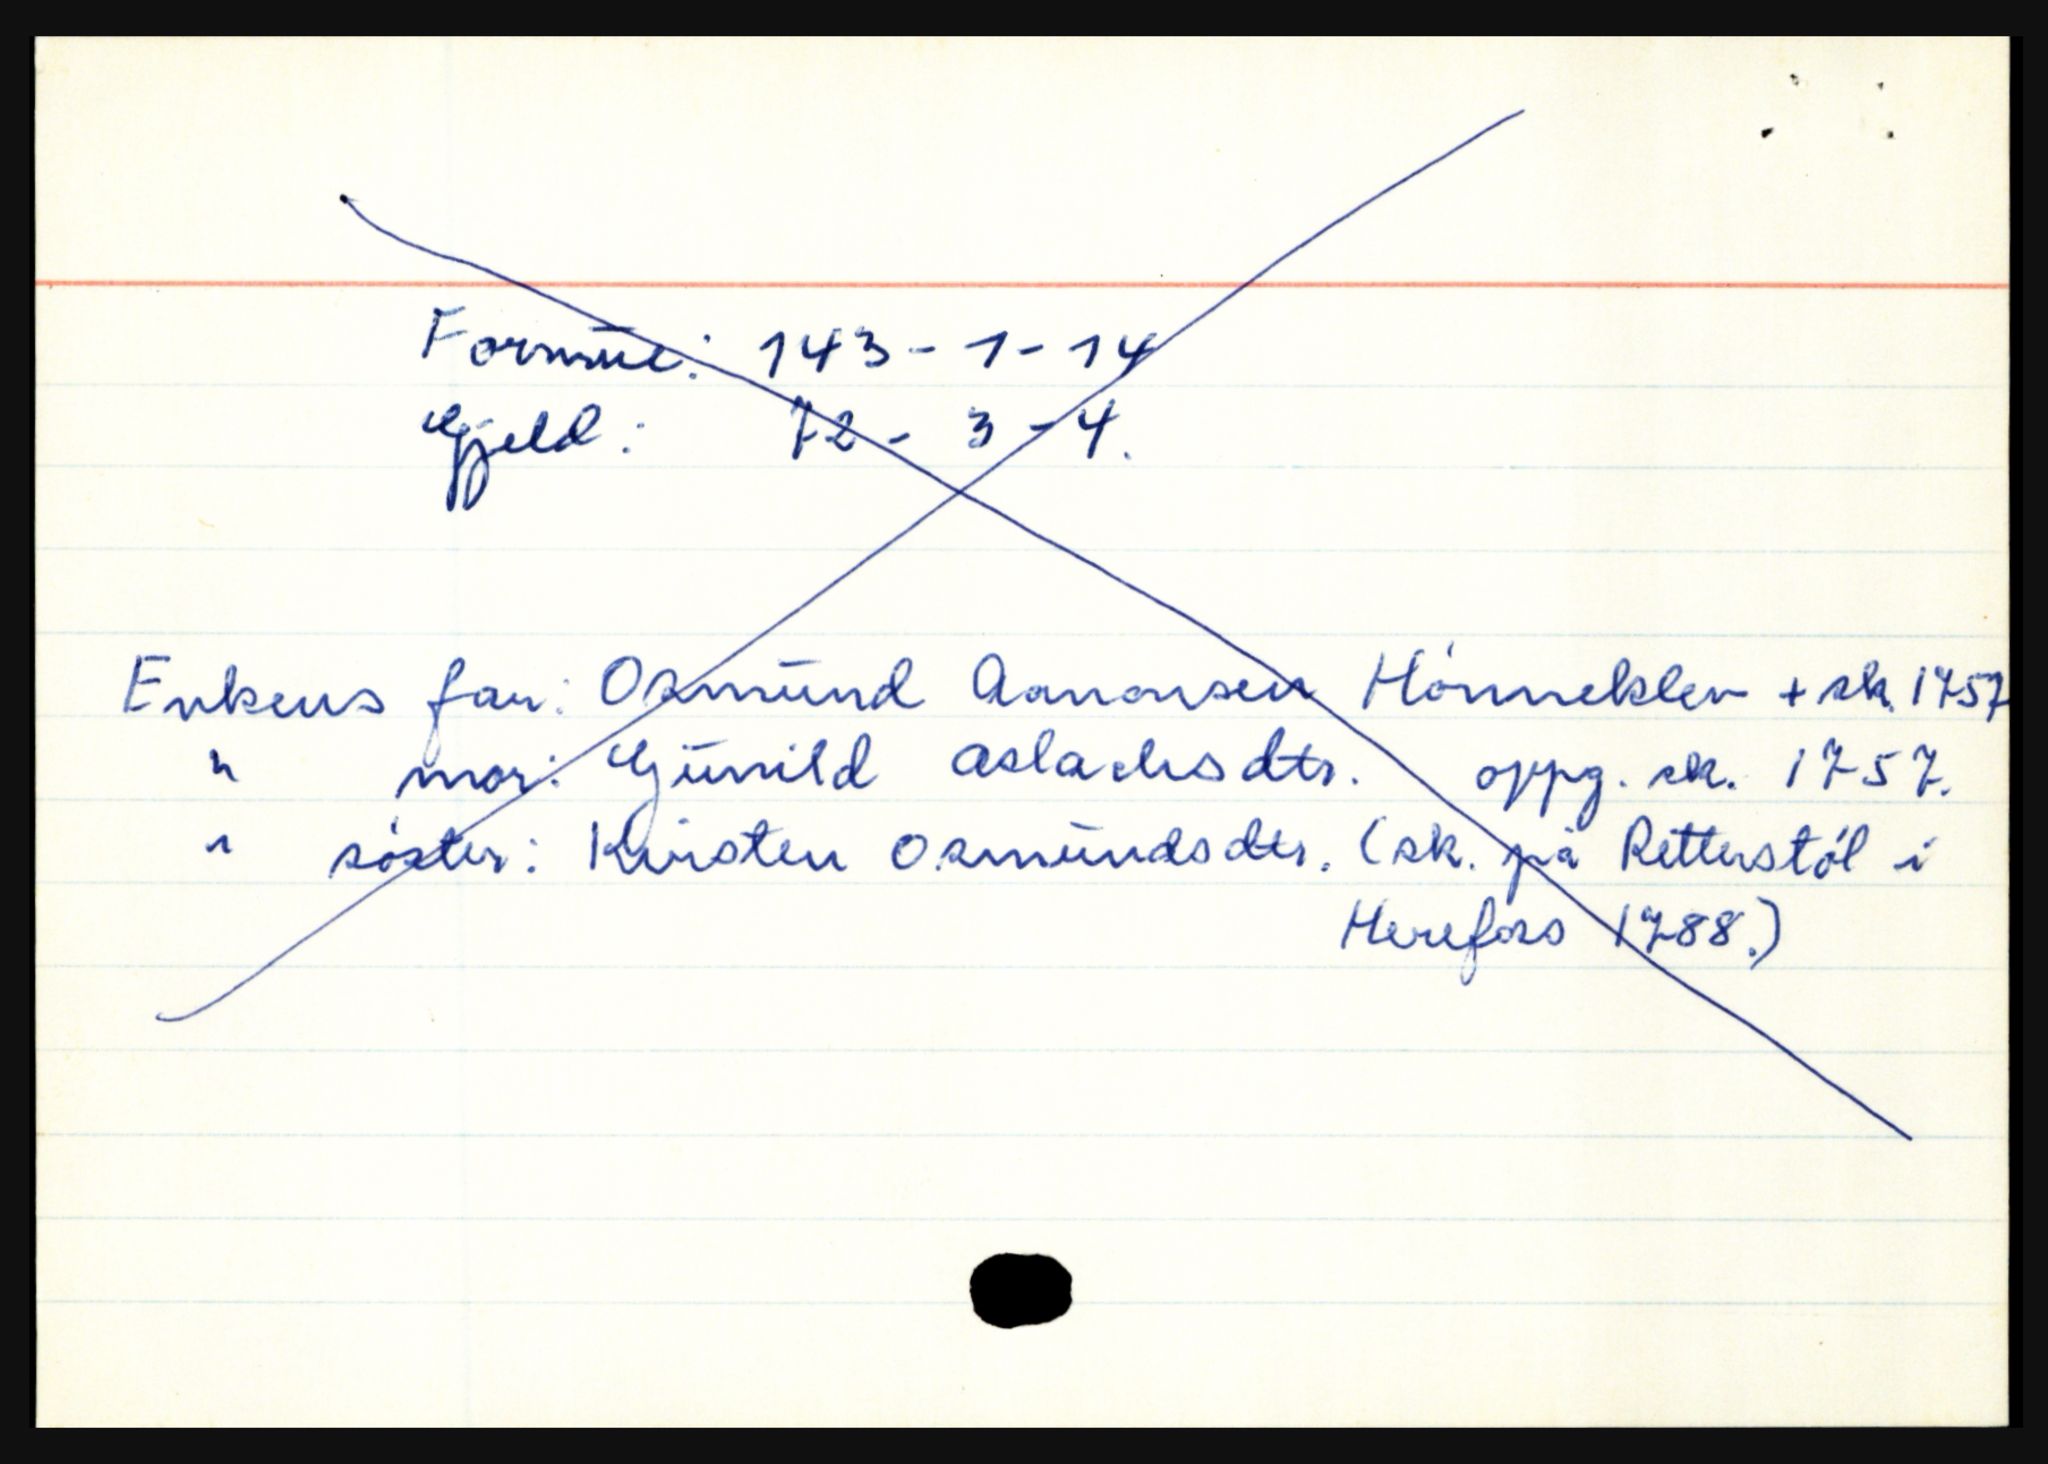 Formue: 143 - 1 - 14
Gjeld: 72 - 3 - 4.
Enkens far: Osmund Aanonsen Hónneklev + sk. 1757
" mor: Gunild Aslachsdtr. oppg. sk. 1757.
" sóster: Kirsten Osmundsdtr. (sk. på Retterstól i
Herefoss 1788.)